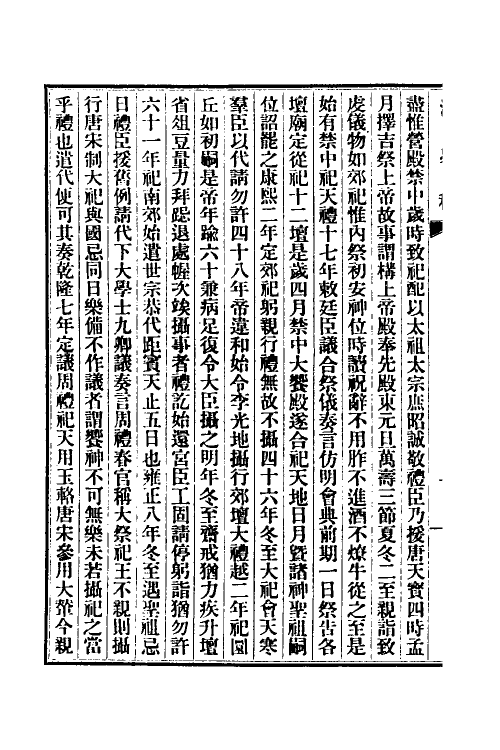 盡惟營殿禁中歲時致祀配以太祖太宗庶昭誠敬禮臣乃援唐天寶四時孟
月擇吉祭上帝故事謂構上帝殿奉先殿東元旦萬壽三節夏冬二至親詣致
虔儀物如郊祀惟內祭初安神位時讀祝辭不用胙不進酒不燎牛從之至是
始有禁中祀天禮十七年敕廷臣議合祭儀奏言仿明會典前期一日祭告各
壇廟定從祀十二壇是歲四月禁中大饗殿遂合祀天地日月曁諸神聖祖嗣
位詔罷之康熙二年定郊祀躬親行禮無故不攝四十六年冬至大祀會天寒
羣臣以代請勿許四十八年帝違和始令李光地攝行郊壇大禮越二年祀圜
丘如初嗣是帝年踰六十兼病足復令大臣攝之明年冬至齋戒猶力疾升壇
省俎豆量力拜跽退處幄次竢攝事者禮訖始還宮臣工固請停躬詣猶勿許
六十一年祀南郊始遣世宗恭代距賓天止五日也雍正八年冬至遇聖祖忌
日禮臣援舊例請代下大學士九卿議奏言周禮春官稱大祭祀王不親則攝
行唐宋制大祀與國忌同日樂備不作議者謂饗神不可無樂未若攝祀之當
乎禮也遣代便可其奏乾隆七年定議周禮祀天用玉輅唐宋參用大輦今親